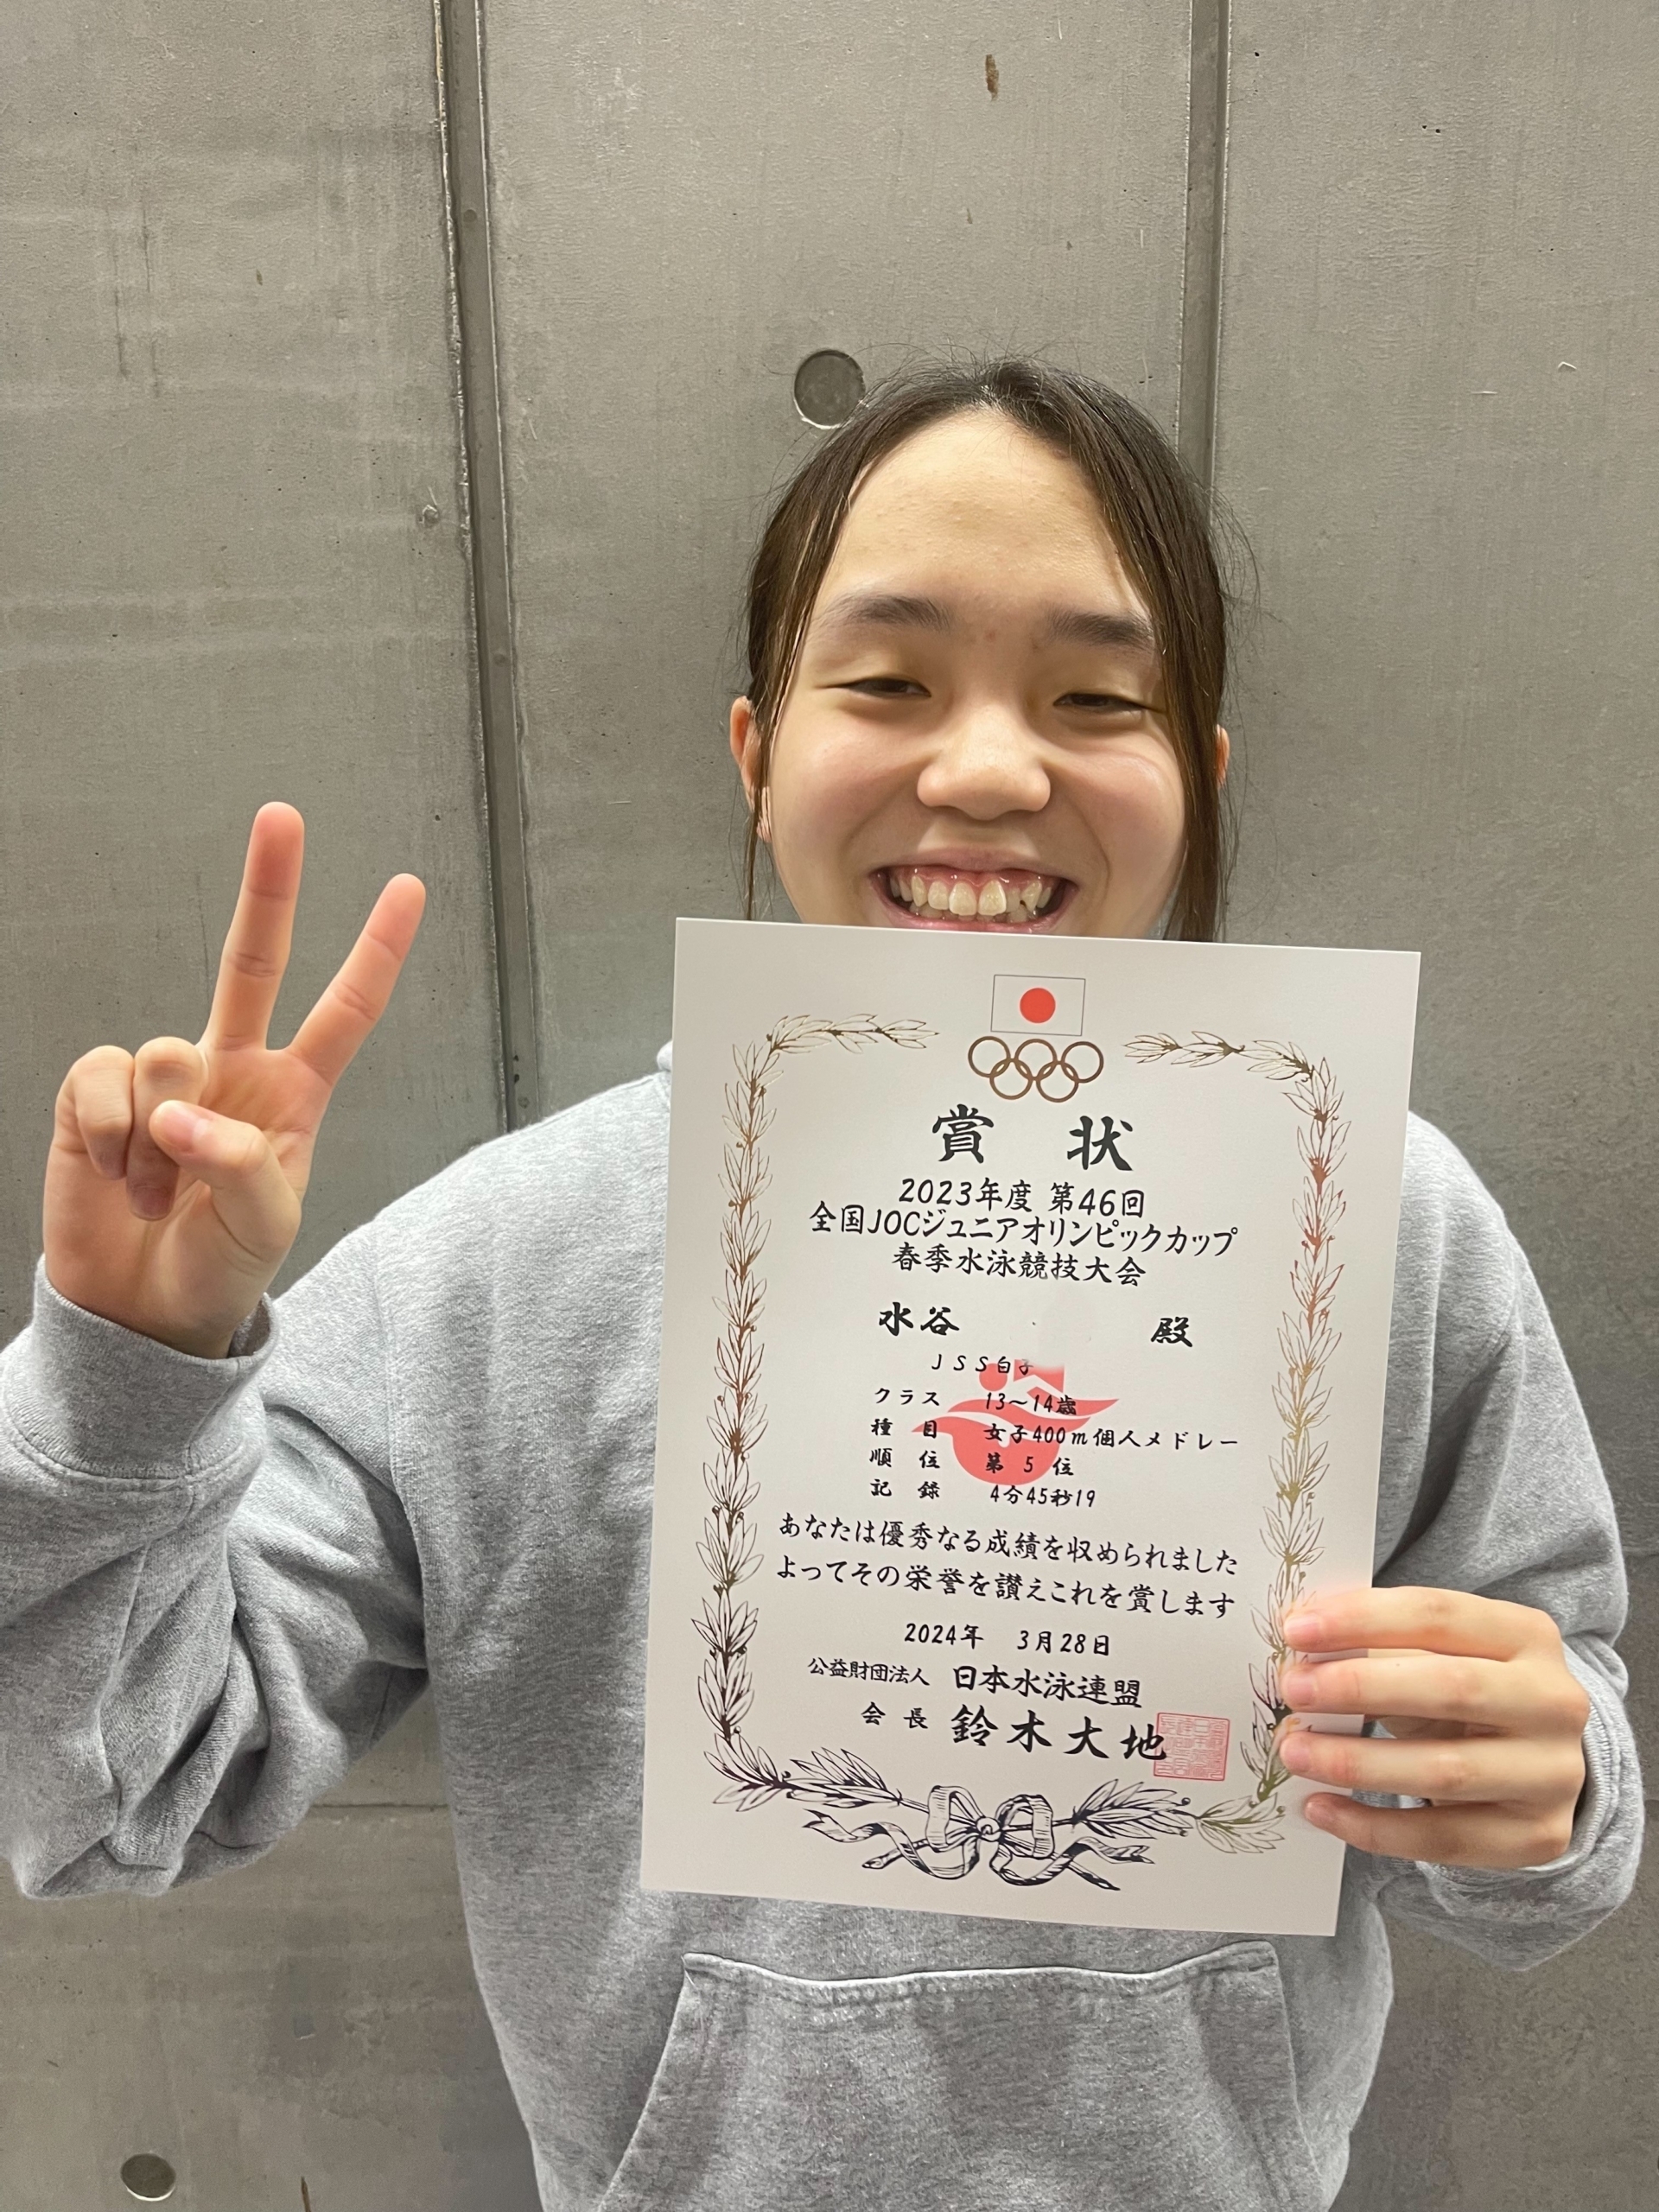 賞 状
2023年度 第46回
全国JOCジュニアオリンピックカップ
春季水泳競技大会
水谷 殿
JSS白子
クラス 13〜14歳
種目 女子400m個人メドレー
順位 第5位
記録 4分45秒19
あなたは優秀なる成績を収められました
よってその栄誉を讃えこれを賞します
2024年 3月28日
公益財団法人 日本水泳連盟
会長 鈴木大地